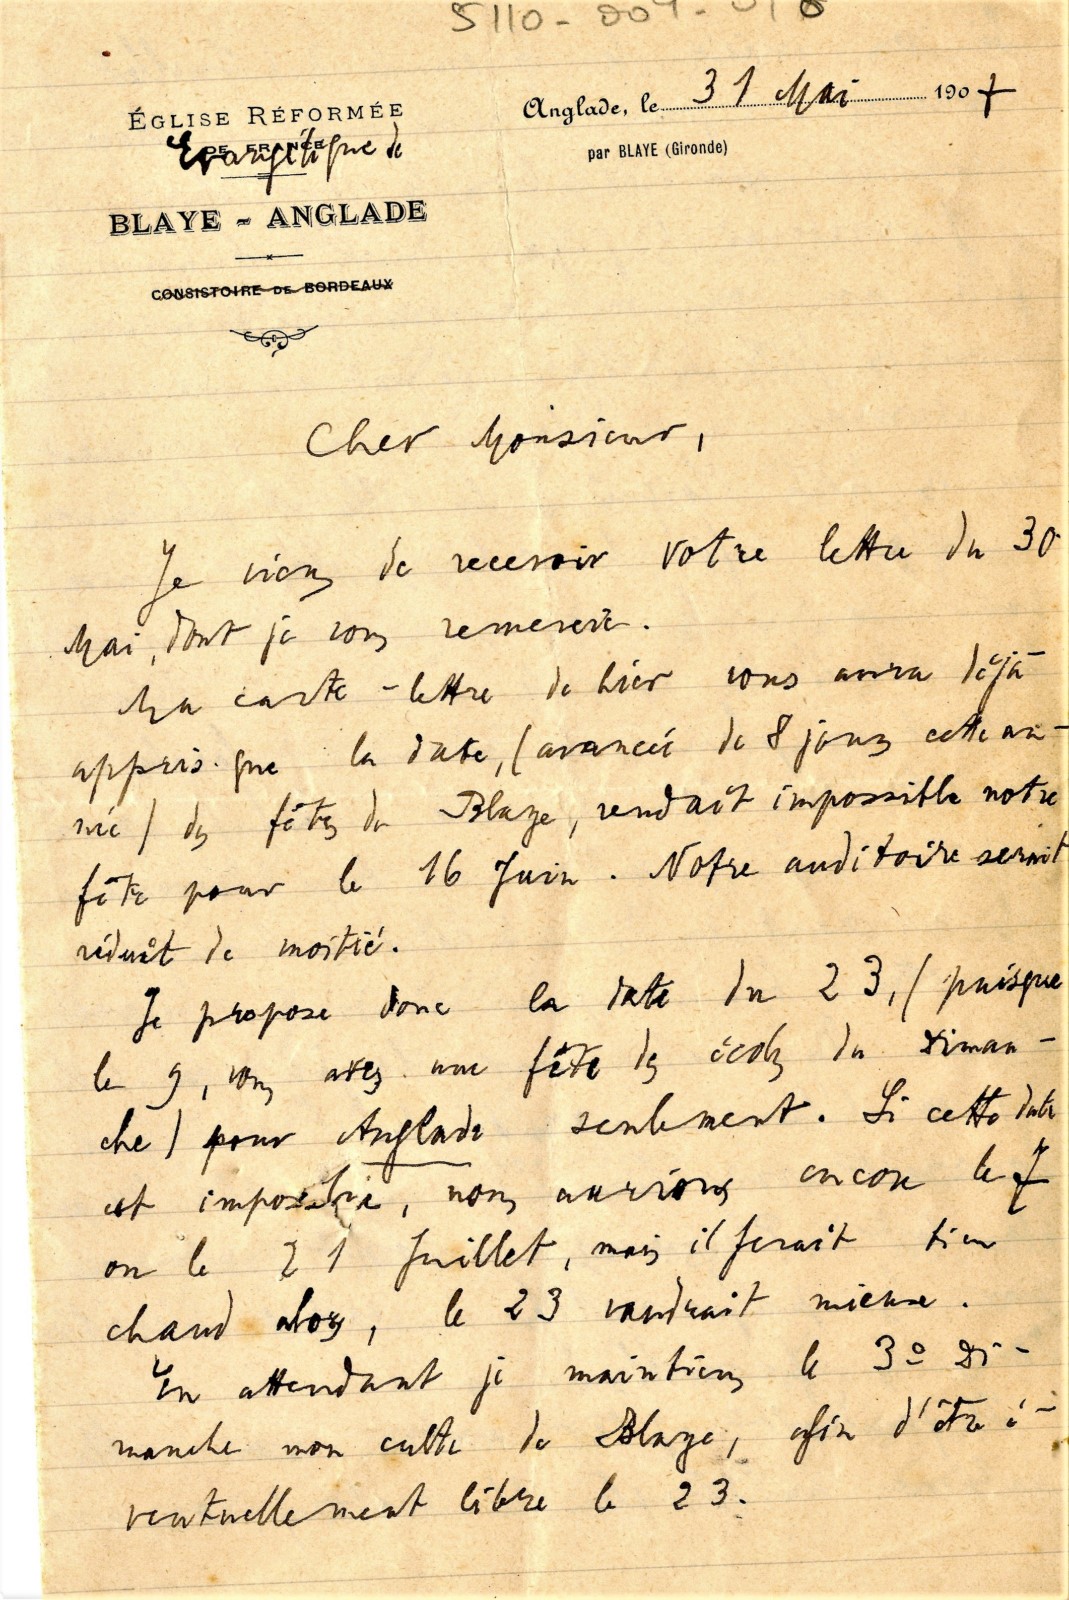 5110-004-016
ÉGLISE RÉFORMÉE
Evangélique de
BLAYE - ANGLADE
CONSISTOIRE DE BORDEAUX
Anglade, le 31 Mai 1907
par BLAYE (Gironde)
Cher Monsieur,
Je viens de recevoir votre lettre du 30
Mai, dont je vous remercie.
Ma carte-lettre de hier vous aura déjà
appris que la date, (avancée de 8 jours cette an-
née) des fêtes de Blaye, rendait impossible notre
fête pour le 16 Juin. Notre auditoire serait
réduit de moitié.
Je propose donc la date du 23, (puisque
le 9, vous avez une fête des écoles du diman-
che) pour Anglade seulement. Si cette date
est impossible, nous aurions encore le 7
ou le 21 Juillet, mais il ferait bien
chaud alors, le 23 vaudrait mieux.
En attendant je maintiens le 3e di-
manche mon culte de Blaye, afin d'être é-
ventuellement libre le 23.